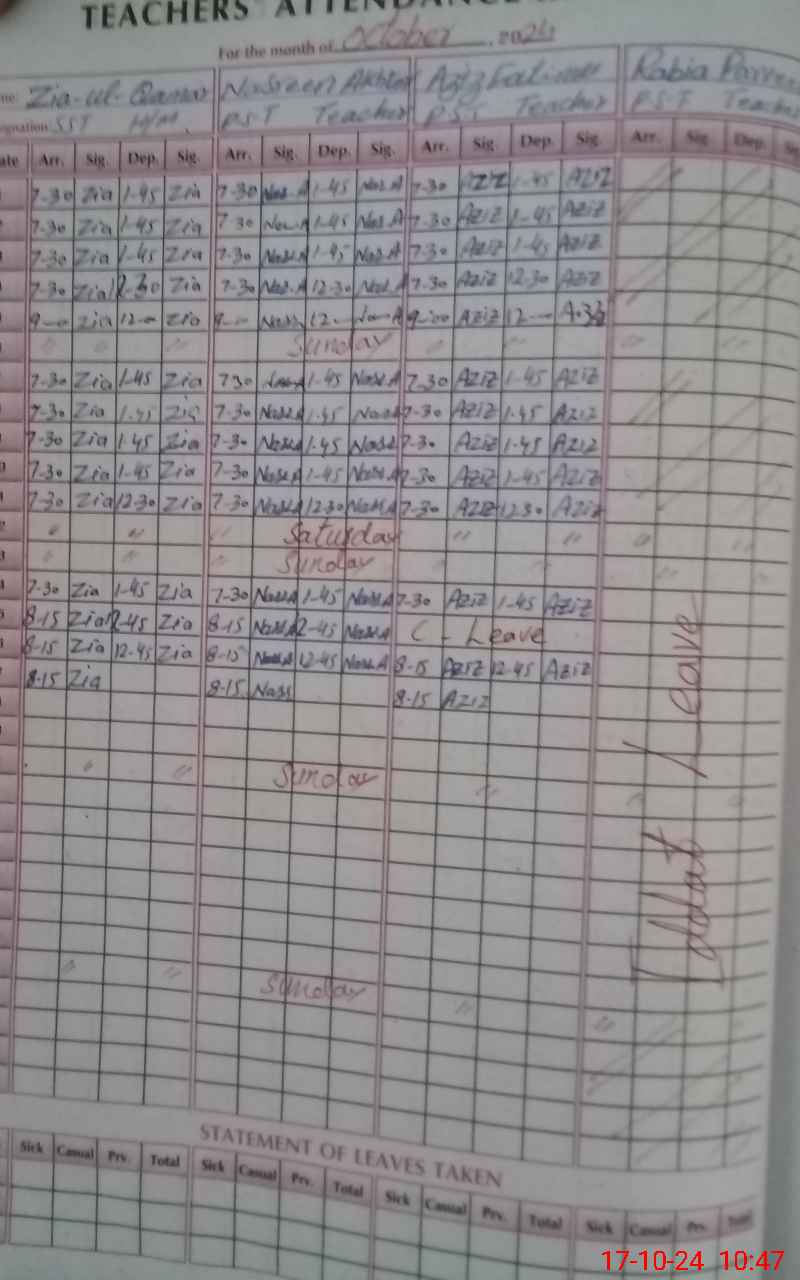 TEACHERS' ATTENDANCE
For the month of October, 2024
Zia-ul-Qamar Nasreen Akhtar Aziz Fatima Rabia Parveen
SST H/M. P.S.T Teacher PST Teacher P.S.T Teacher
Arr. Sig. Dep. Sig. Arr. Sig. Dep. Sig. Arr. Sig. Dep. Sig. Arr. Sig. Dep.
7-30 Zia 1-45 Zia 7-30 Nas.A 1-45 Nas.A 7-30 AZIZ 1-45 AZIZ
7-30 Zia 1-45 Zia 7-30 Nas.A 1-45 Nas.A 7-30 AZIZ 1-45 AZIZ
7-30 Zia 1-45 Zia 7-30 Nas.A 1-45 Nas.A 7-30 AZIZ 1-45 AZIZ
7-30 Zia 12-30 Zia 7-30 Nas.A 12-30 Nas.A 7-30 AZIZ 12-30 AZIZ
9-0 Zia 12-0 Zia 9-- Nas 12-- Nas.A 9-00 AZIZ 12--
" " " Sunday " " "
7-30 Zia 1-45 Zia 7-30 Nas.A 1-45 Nas.A 7-30 AZIZ 1-45 AZIZ
7-30 Zia 1-45 Zia 7-30 Nas.A 1-45 Nas.A 7-30 AZIZ 1-45 AZIZ
7-30 Zia 1-45 Zia 7-30 Nas.A 1-45 Nas.A 7-30 AZIZ 1-45 AZIZ
7-30 Zia 1-45 Zia 7-30 Nas.A 1-45 Nas.A 7-30 AZIZ 1-45 AZIZ
7-30 Zia 12-30 Zia 7-30 Nas.A 12-30 Nas.A 7-30 AZIZ 12-30 AZIZ
" " " Saturday " " " "
" " " Sunday " " "
7-30 Zia 1-45 Zia 7-30 Nas.A 1-45 Nas.A 7-30 AZIZ 1-45 AZIZ
8-15 Zia 12-45 Zia 8-15 Nas.A 12-45 Nas.A C - Leave
8-15 Zia 12-45 Zia 8-15 Nas.A 12-45 Nas.A 8-15 AZIZ 12-45 AZIZ
8-15 Zia 8-15 Nas 8-15 AZIZ
" " Sunday " " "
" " Sunday " "
Iddat Leave
STATEMENT OF LEAVES TAKEN
Sick Casual Prv. Total Sick Casual Prv. Total Sick Casual Prv. Total Sick Casual Prv. Total
17-10-24 10:47